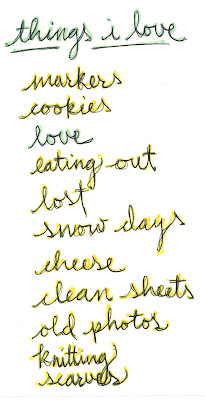 things i love
markers
cookies
love
eating out
lost
snow days
cheese
clean sheets
old photos
knitting
scarves